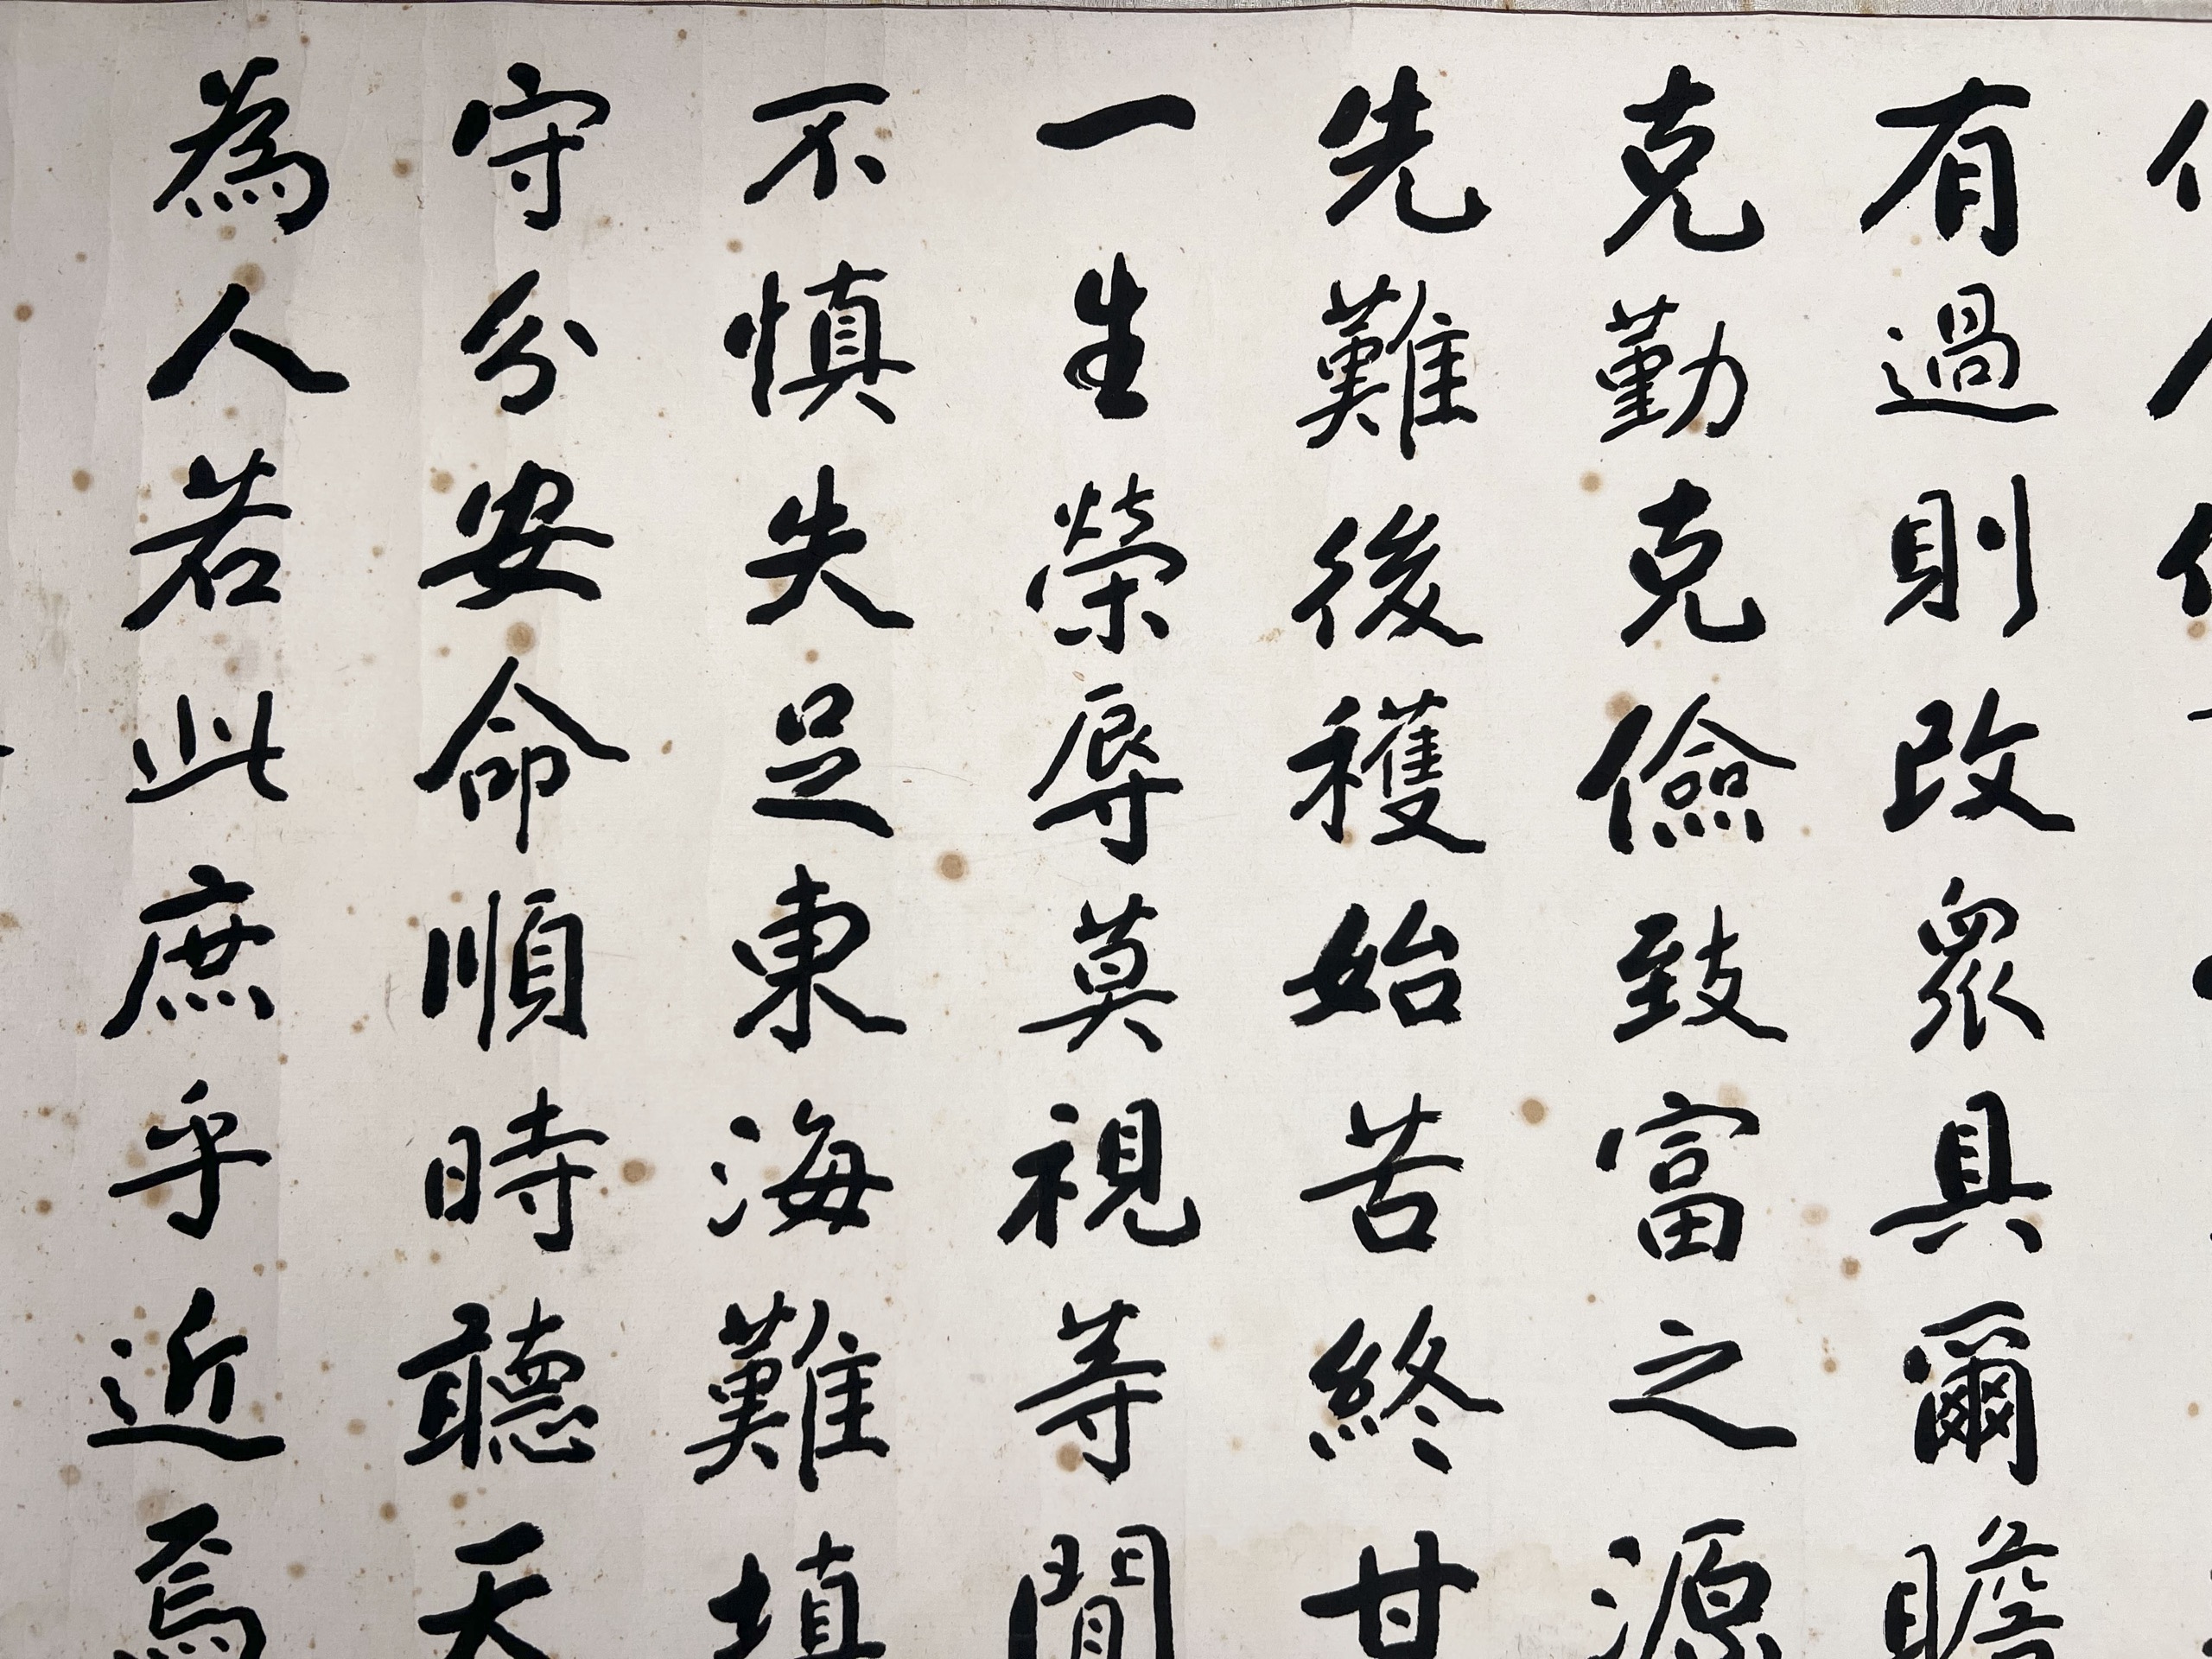 有過則改眾具爾瞻
克勤克儉致富之源
先難後穫始苦終甘
一生榮辱莫視等閒
不慎失足東海難填
守分安命順時聽天
為人若此庶乎近焉